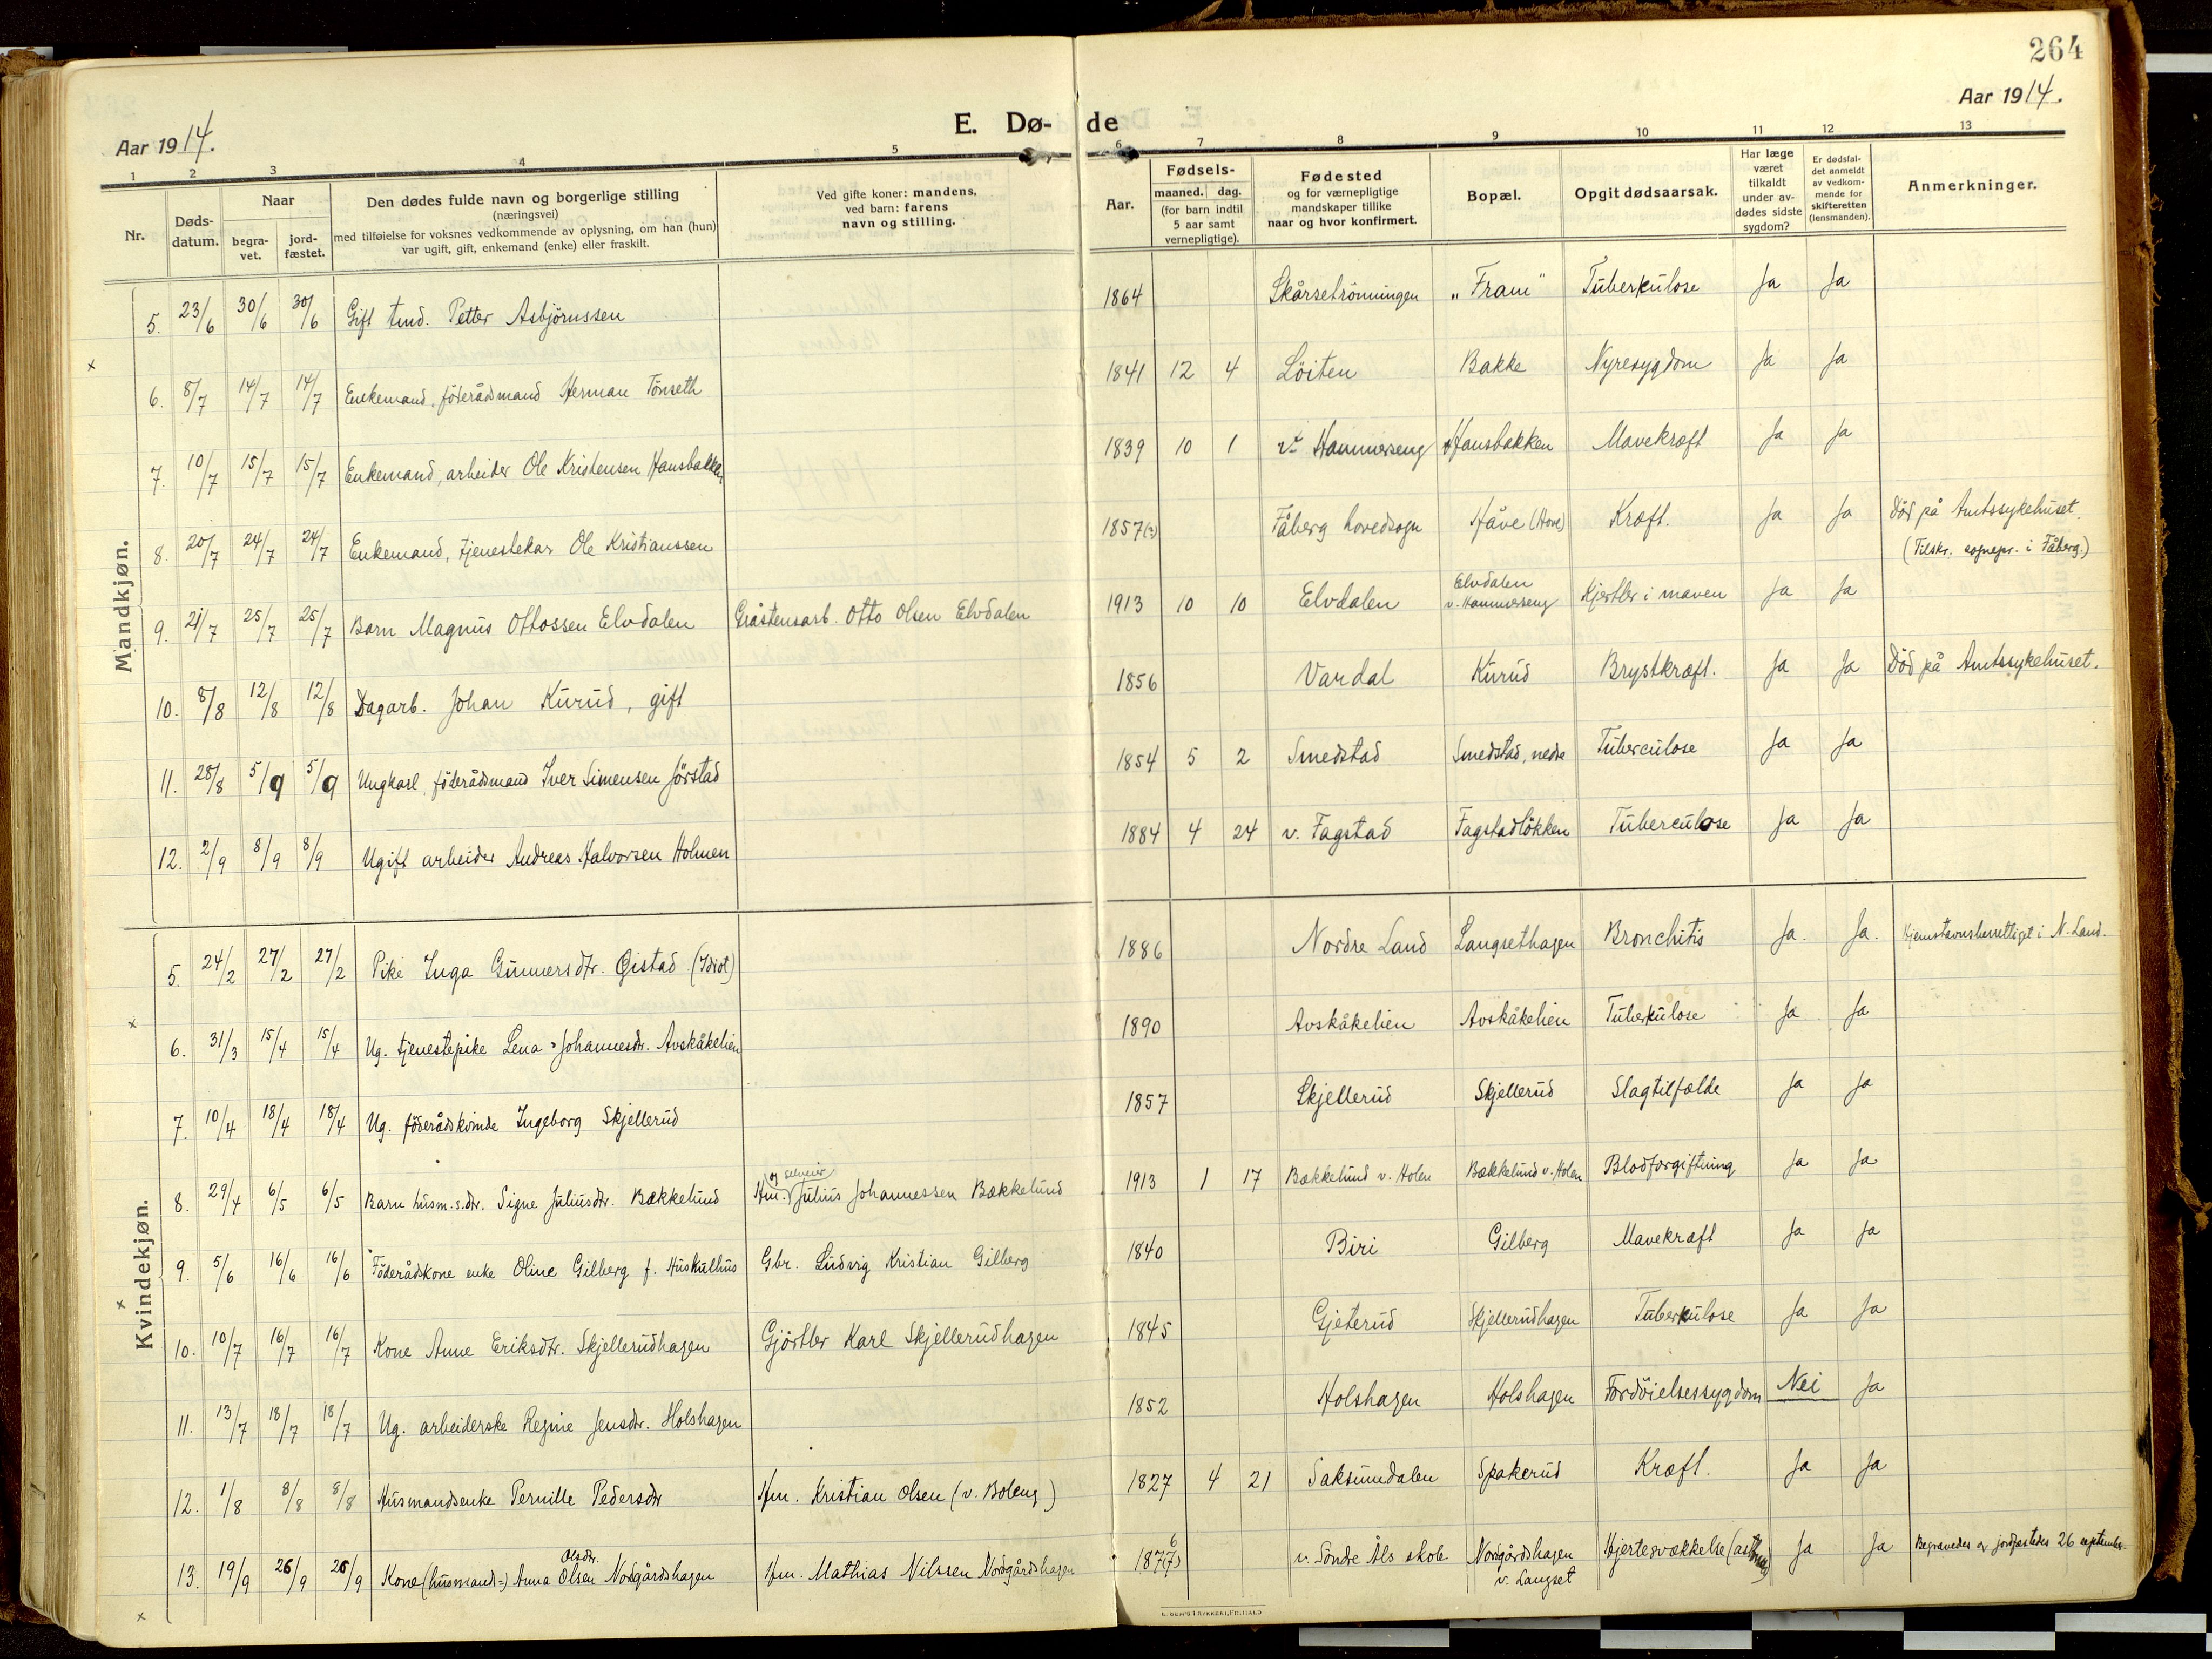 264
Aar 1914.
E. Dø-
de
Aar 1914.
1 2 3 4 5 6 7 8 9 10 11 12 13
Nr.
Døds-
datum.
Naar
begra-
vet.
jord-
fæstet.
Den dødes fulde navn og borgerlige stilling
(næringsvei)
med tilføielse for voksnes vedkommende av oplysning, om han (hun)
var ugift, gift, enkemand (enke) eller fraskilt.
Ved gifte koner: mandens,
ved barn: farens
navn og stilling.
Aar.
Fødsels-
maaned. dag.
(for barn indtil
5 aar samt
vernepligtige).
Fødested
og for værnepligtige
mandskaper tillike
naar og hvor konfirmert.
Bopæl.
Opgit dødsaarsak.
Har læge
været
tilkaldt
under av-
dødes sidste
sygdom?
Er dødsfal-
det anmeldt
av vedkom-
mende for
skifteretten
(lensmanden).
Anmerkninger.
Mandkjøn.
5. 23/6 30/6 30/6 Gift Petter Asbjörnssen 1864 Skårsetrönningen "Fram" Tuberkulose Ja Ja
6. 8/7 14/7 14/7 Enkemand, föderådsmand Herman Tönseth 1841 12 4 Löiten Bakke Nyresygdom Ja Ja
7. 10/7 15/7 15/7 Enkemand, arbeider Ole Kristensen Hansbakken 1839 10 1 v. Hammerseng Hansbakken Mavekræft Ja Ja
8. 20/7 24/7 24/7 Enkemand, tjenestekar Ole Kristianssen 1857(?) Fåberg hovedsogn Håve (Hove) Kræft. Ja Ja Död på Amtssykehuset.
(Tilskr. sognepr. i Fåberg.)
9. 21/7 25/7 25/7 Barn Magnus Ottossen Elvdalen Gråstensarb. Otto Olsen Elvdalen 1913 10 10 Elvdalen Elvdalen v. Hammerseng Kjertler i maven Ja Ja
10. 8/8 12/8 12/8 Dagarb. Johan Kurud, gift 1856 Vardal Kurud Brystkræft. Ja Ja Död på Amtssykehuset.
11. 28/8 5/9 5/9 Ungkarl, föderådsmand Iver Simensen Jörstad 1854 5 2 Smedstad Smedstad, nedre Tuberculose Ja Ja
12. 2/9 8/9 8/9 Ugift arbeider Andreas Halvorsen Holmen 1884 4 24 v. Fagstad Fagstadlökken Tuberculose Ja Ja
Kvindekjøn.
5. 24/2 27/2 27/2 Pike Inga Gunnersdtr. Gistad (Idiot) 1886 Nordre Land Langsethagen Bronchitis Ja. Ja. Hjemstavnsberettiget i N. Land.
6. 31/3 15/4 15/4 Ug. tjenestepike Lena Johannesdr. Avskåkelien 1890 Avskåkelien Avskåkelien Tuberkulose Ja Ja
7. 10/4 18/4 18/4 Ug. föderådskvinde Ingeborg Skjellerud 1857 Skjellerud Skjellerud Slagtilfælde Ja Ja
8. 29/4 6/5 6/5 Barn husm.s.dtr. Signe Juliusdtr. Bækkelund Hm. og selveier Julius Johannessen Bækkelund 1913 1 17 Bækkelund v. Holen Bækkelund v. Holen Blodforgiftning Ja Ja
9. 5/6 16/6 16/6 Föderådkone enke Oline Gilberg f. Huskulhus Gbr. Ludvig Kristian Gilberg 1840 Biri Gilberg Mavekræft Ja Ja
10. 10/7 16/7 16/7 Kone Anne Eriksdtr. Skjellerudhagen Gjörtler Karl Skjellerudhagen 1845 Gjeterud Skjellerudhagen Tuberkulose Ja Ja
11. 13/7 18/7 18/7 Ug. arbeiderske Regine Jensdtr. Holshagen 1852 Holshagen Holshagen Fordöielsessygdom Nei Ja
12. 1/8 8/8 8/8 Husmandsenke Pernille Pedersdtr Hm. Kristian Olsen (v. Boleng) 1827 4 21 Saksumdalen Spakerud Kræft. Ja Ja
13. 19/9 26/9 26/9 Kone (husmand=) Anna Olsen Olsdtr. Nordgårdshagen Hm. Mathias Nilssen Nordgårdshagen 1877(6) v. Söndre Åls skole Nordgårdshagen v. Langset Hjertesvækkelse (asthma) Ja Ja Begravedes og jordfæstedes 26 september.